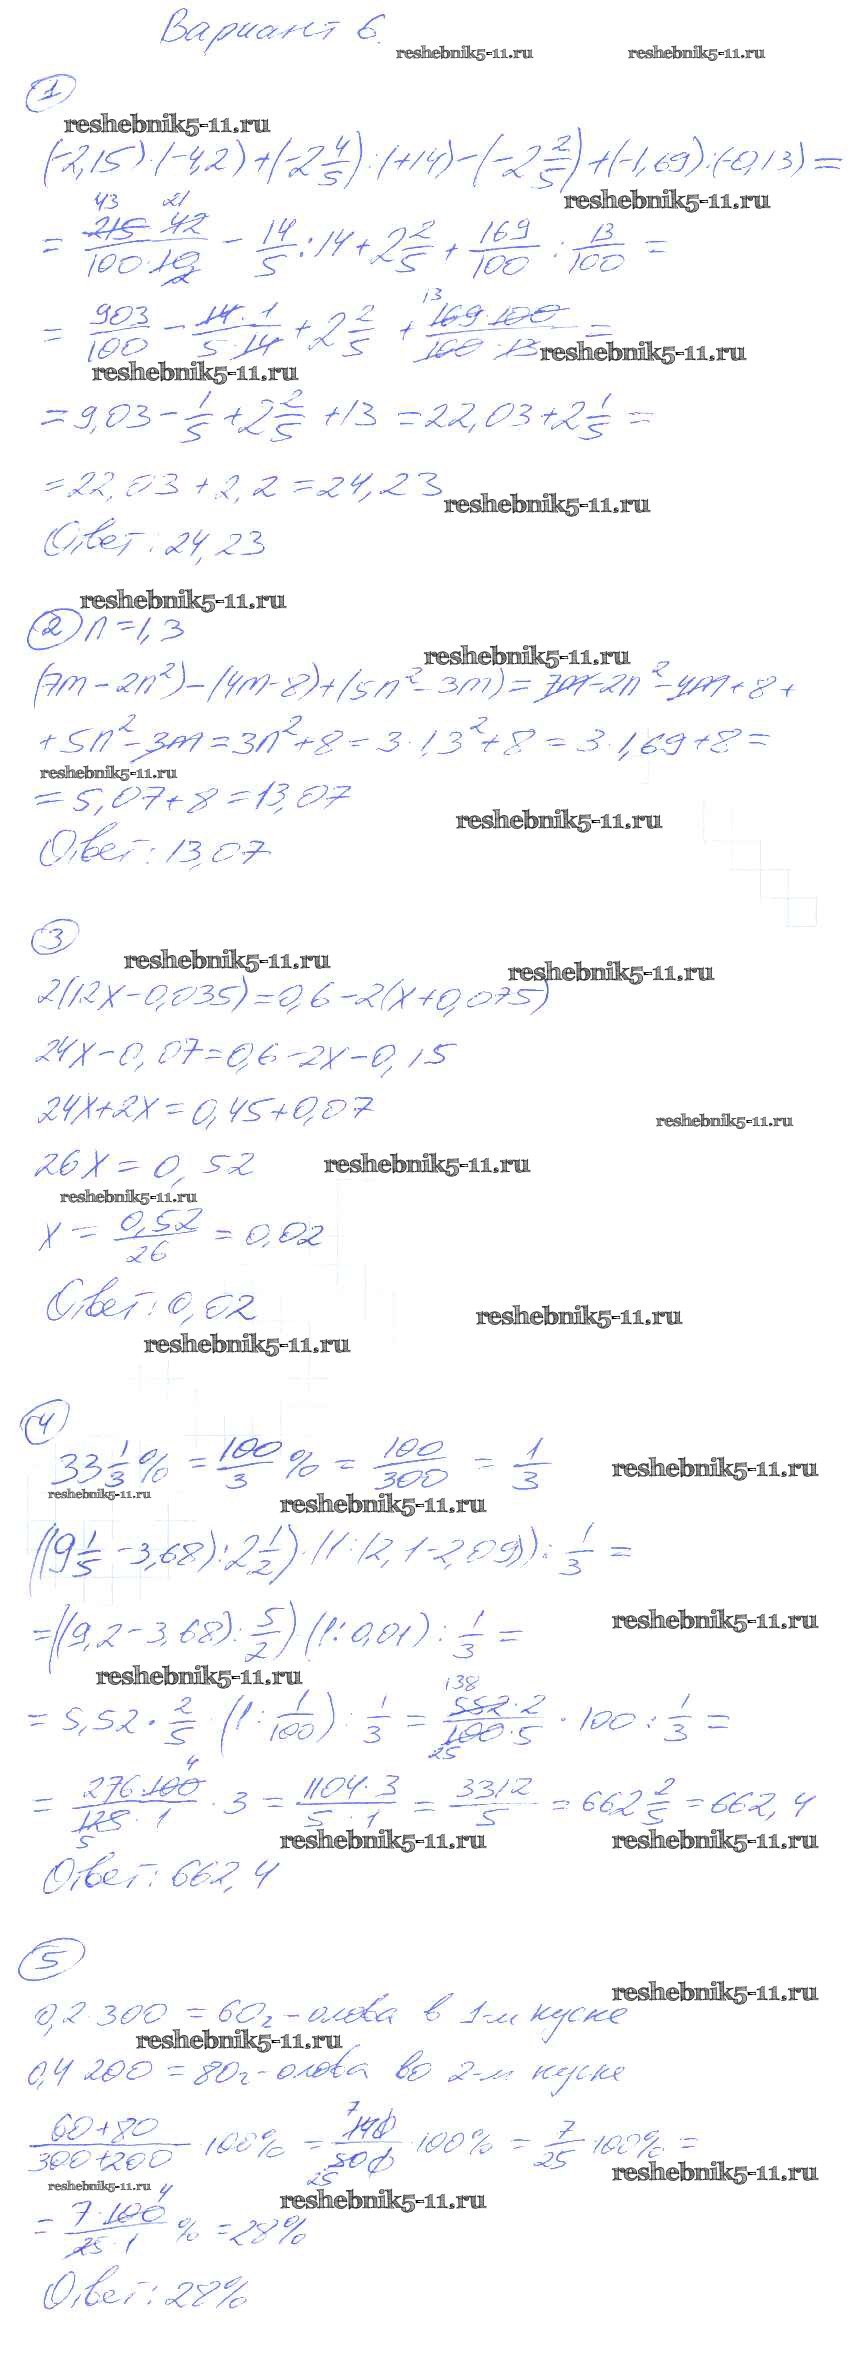 Вариант 6.
reshebnik5-11.ru reshebnik5-11.ru
1
reshebnik5-11.ru
(-2,15)·(-4,2)+(-2 4/5):(+14)-(-2 2/5)+(-1,69):(-0,13)=
reshebnik5-11.ru
43 21
= 215·42/100·10 2 - 14/5 : 14 + 2 2/5 + 169/100 : 13/100 =
13
= 903/100 - 14·1/5·14 + 2 2/5 + 169·100/100·13 =
reshebnik5-11.ru
reshebnik5-11.ru
= 9,03 - 1/5 + 2 2/5 + 13 = 22,03 + 2 1/5 =
= 22,03 + 2,2 = 24,23
reshebnik5-11.ru
Ответ: 24,23
reshebnik5-11.ru
2 n = 1,3
reshebnik5-11.ru
(7m - 2n²) - (4m - 8) + (5n² - 3m) = 7m - 2n² - 4m + 8 +
+ 5n² - 3m = 3n² + 8 = 3·1,3² + 8 = 3·1,69 + 8 =
reshebnik5-11.ru
= 5,07 + 8 = 13,07
reshebnik5-11.ru
Ответ: 13,07
3
reshebnik5-11.ru
reshebnik5-11.ru
2(12x - 0,035) = 0,6 - 2(x + 0,075)
24x - 0,07 = 0,6 - 2x - 0,15
24x + 2x = 0,45 + 0,07
reshebnik5-11.ru
26x = 0,52
reshebnik5-11.ru
reshebnik5-11.ru
x = 0,52/26 = 0,02
Ответ: 0,02
reshebnik5-11.ru
reshebnik5-11.ru
4
33 1/3 % = 100/3 % = 100/300 = 1/3
reshebnik5-11.ru
reshebnik5-11.ru
reshebnik5-11.ru
((9 1/5 - 3,68) : 2 1/2)·(1 : (2,1 - 2,09)) : 1/3 =
= ((9,2 - 3,68) : 5/2) (1 : 0,01) : 1/3 =
reshebnik5-11.ru
reshebnik5-11.ru
138
= 5,52 · 2/5 · (1 : 1/100) : 1/3 = 552·2/100·5 · 100 : 1/3 =
25
4
= 276·100/125·1 · 3 = 1104·3/5·1 = 3312/5 = 662 2/5 = 662,4
5
reshebnik5-11.ru reshebnik5-11.ru
Ответ: 662,4
5
reshebnik5-11.ru
0,2·300 = 60г - олова в 1-м куске
reshebnik5-11.ru
0,4·200 = 80г - олова во 2-м куске
7
60+80/300+200 · 100% = 140/500 · 100% = 7/25 · 100% =
25
reshebnik5-11.ru
reshebnik5-11.ru
reshebnik5-11.ru
4
= 7·100/25·1 % = 28%
Ответ: 28%